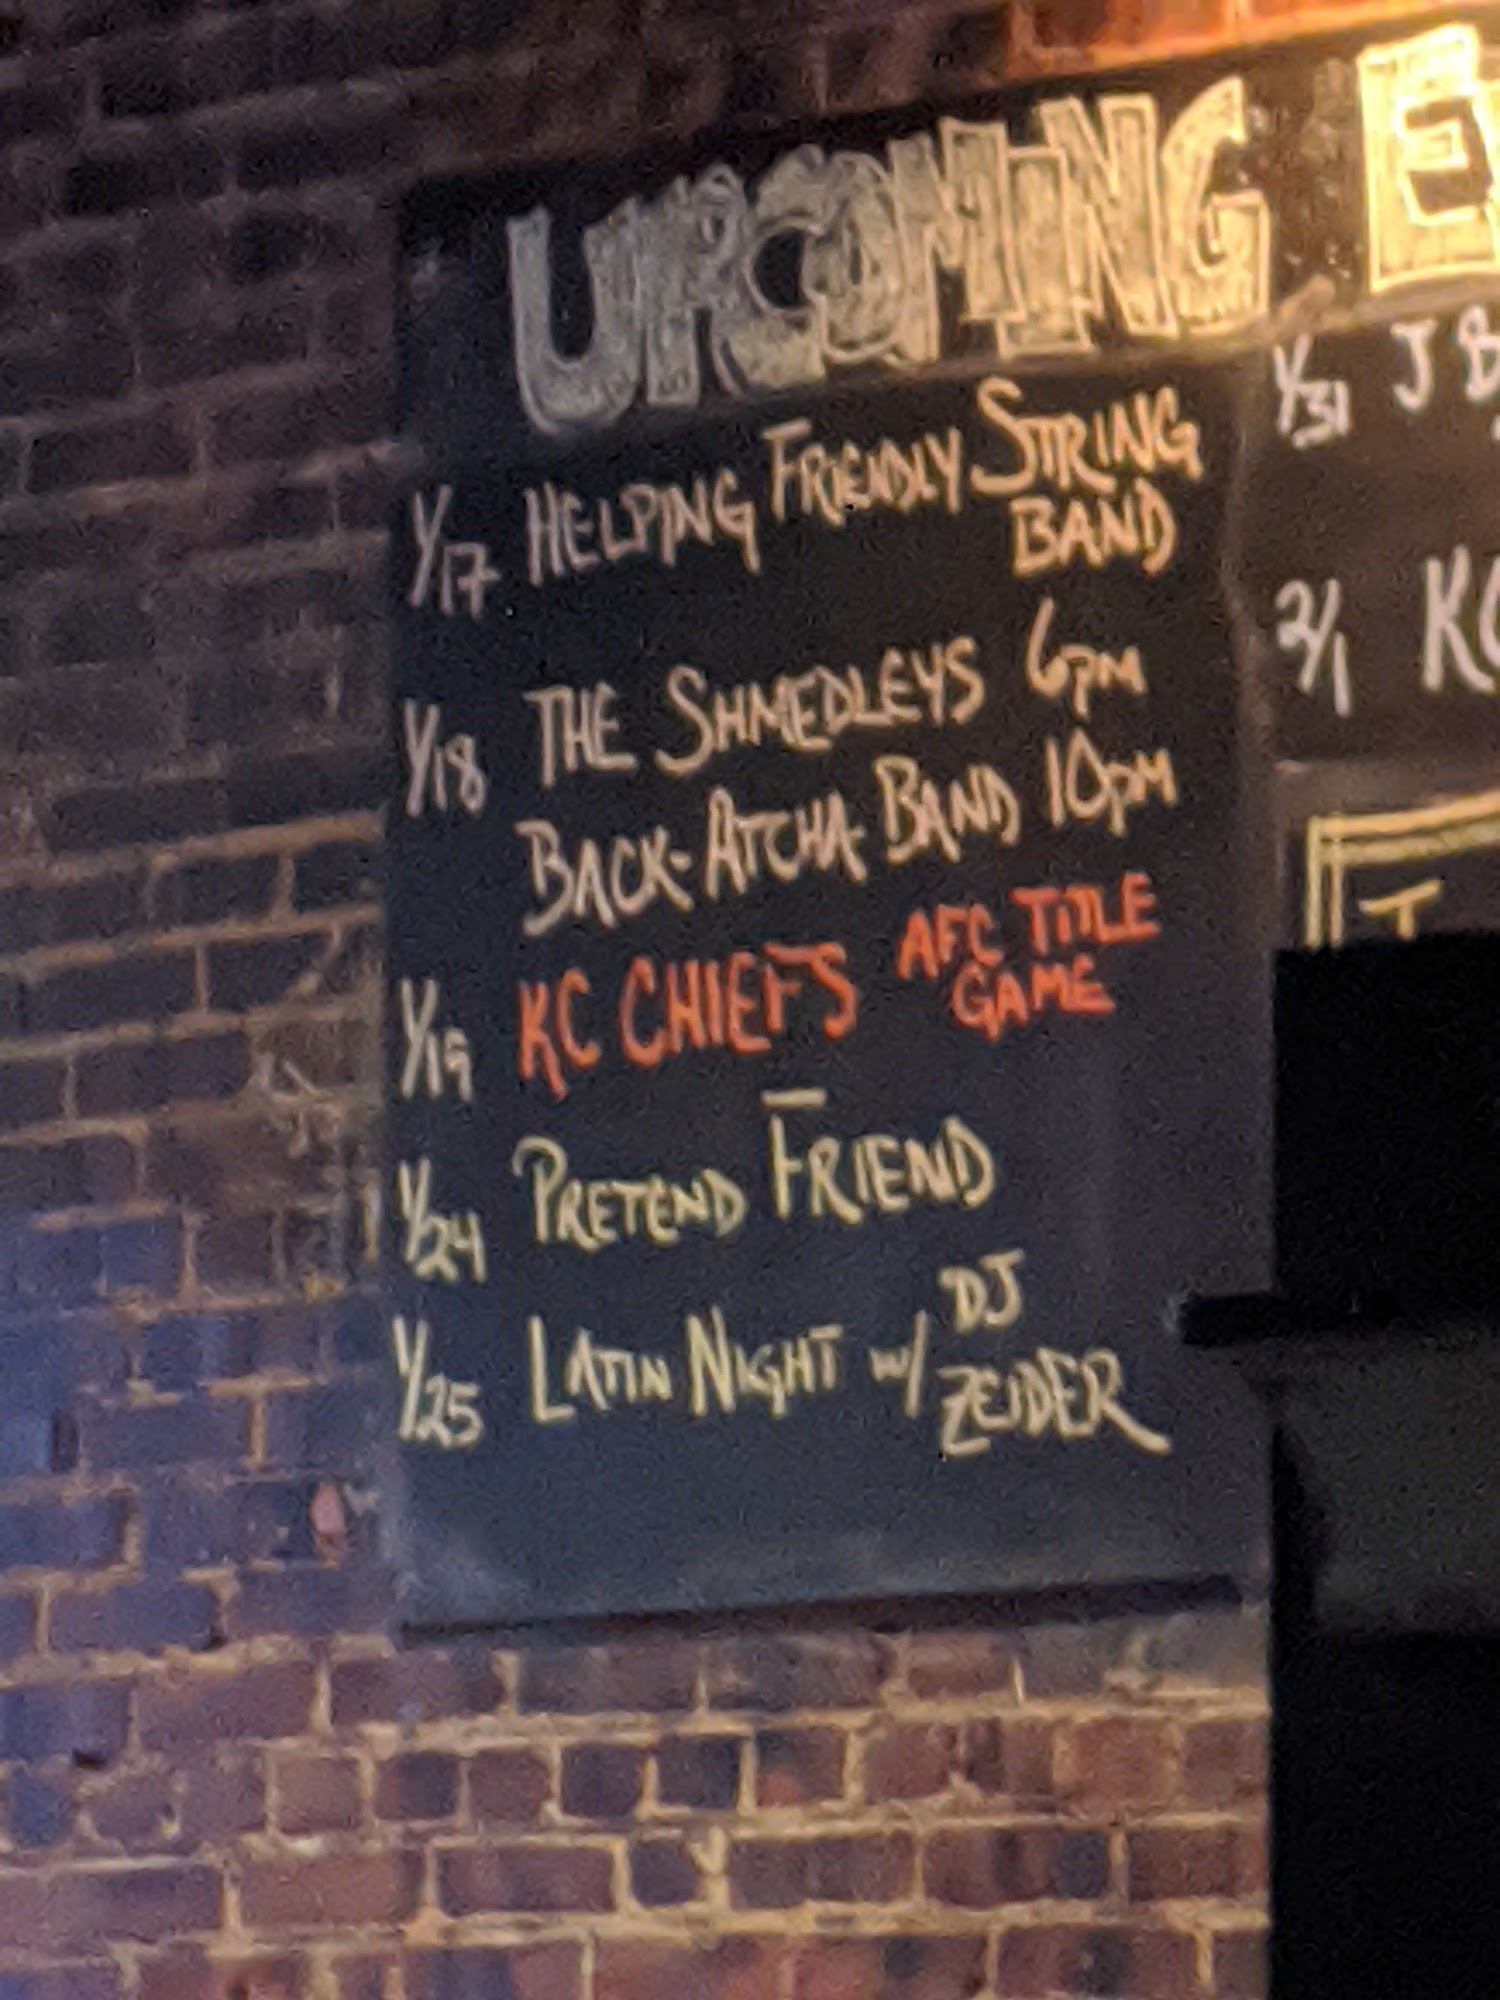 UPCOMING
1/17 HELPING FRIENDLY STRING
BAND
1/18 THE SHMEDLEYS 6PM
BACK-ATCHA-BAND 10PM
1/19 KC CHIEFS AFC TITLE
GAME
1/24 PRETEND FRIEND
1/25 LATIN NIGHT W/ DJ
ZEIDER
1/31 J
2/1 KC